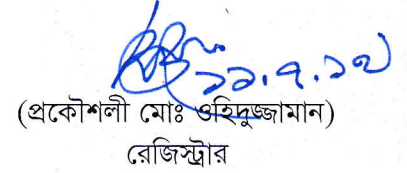 ১১.৭.১৭
(প্রকৌশলী মোঃ ওহিদুজ্জামান)
রেজিস্ট্রার